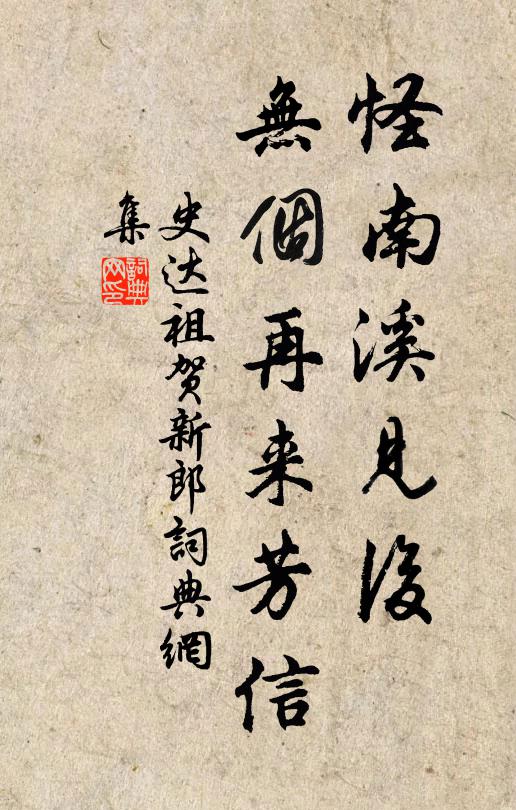 怪南溪見後
無個再来芳信
史达祖賀新郎詞典網
集
詞典网印